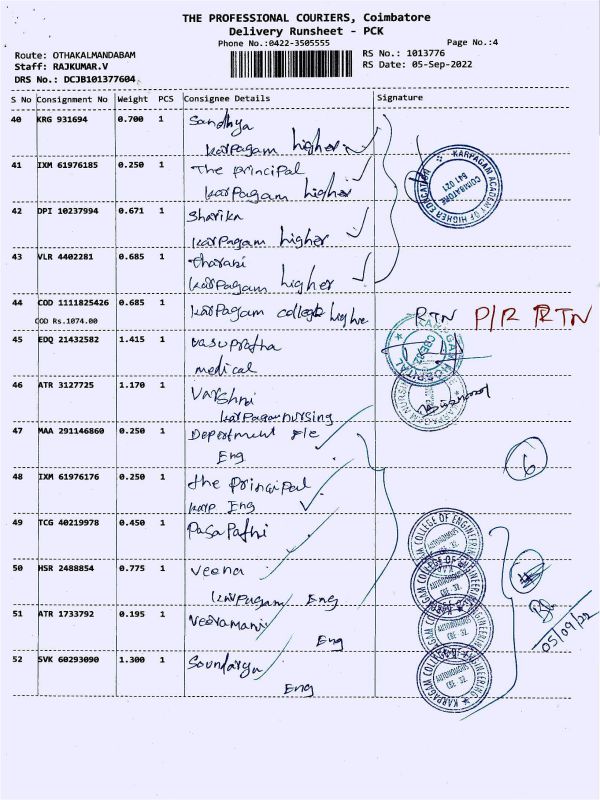 THE PROFESSIONAL COURIERS, Coimbatore
Delivery Runsheet - PCK
Phone No.:0422-3505555
Page No.:4
Route: OTHAKALMANDABAM
RS No.: 1013776
Staff: RAJKUMAR.V
RS Date: 05-Sep-2022
DRS No.: DCJB101377604
S No Consignment No Weight PCS Consignee Details Signature
40 KRG 931694 0.700 1 Sandhya
Karpagam higher
41 IXM 61976185 0.250 1 The principal
Karpagam higher
KARPAGAM ACADEMY OF HIGHER EDUCATION
COIMBATORE
641 021
42 DPI 10237994 0.671 1 Sharika
Karpagam higher
43 VLR 4402281 0.685 1 tharani
Karpagam higher
44 COD 1111825426 0.685 1 Karpagam college highe RTN P/R RTN
COD Rs.1074.00
45 EDQ 21432582 1.415 1 vasupratha
medical
46 ATR 3127725 1.170 1 Varshni
Karpagam nursing
47 MAA 291146860 0.250 1 Department
Eng
6
48 IXM 61976176 0.250 1 the principal
Karp Eng
49 TCG 40219978 0.450 1 Pasapathi
KARPAGAM COLLEGE OF ENGINEERING
AUTONOMOUS
CBE-32
50 HSR 2488854 0.775 1 Veena
Karpagam Eng
KARPAGAM COLLEGE OF ENGINEERING
AUTONOMOUS
CBE-32
51 ATR 1733792 0.195 1 Veeramani
Eng
KARPAGAM COLLEGE OF ENGINEERING
AUTONOMOUS
CBE-32
05/09/22
52 SVK 60293090 1.300 1 Soundarya
Eng
KARPAGAM COLLEGE OF ENGINEERING
AUTONOMOUS
CBE-32